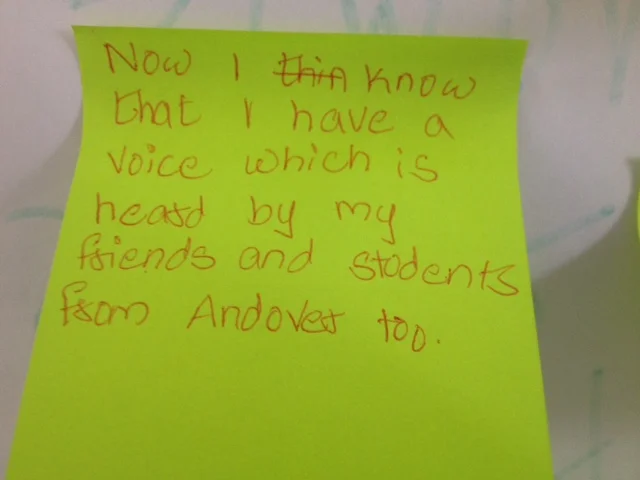 Now I thin know
that I have a
voice which is
heard by my
friends and students
from Andover too.